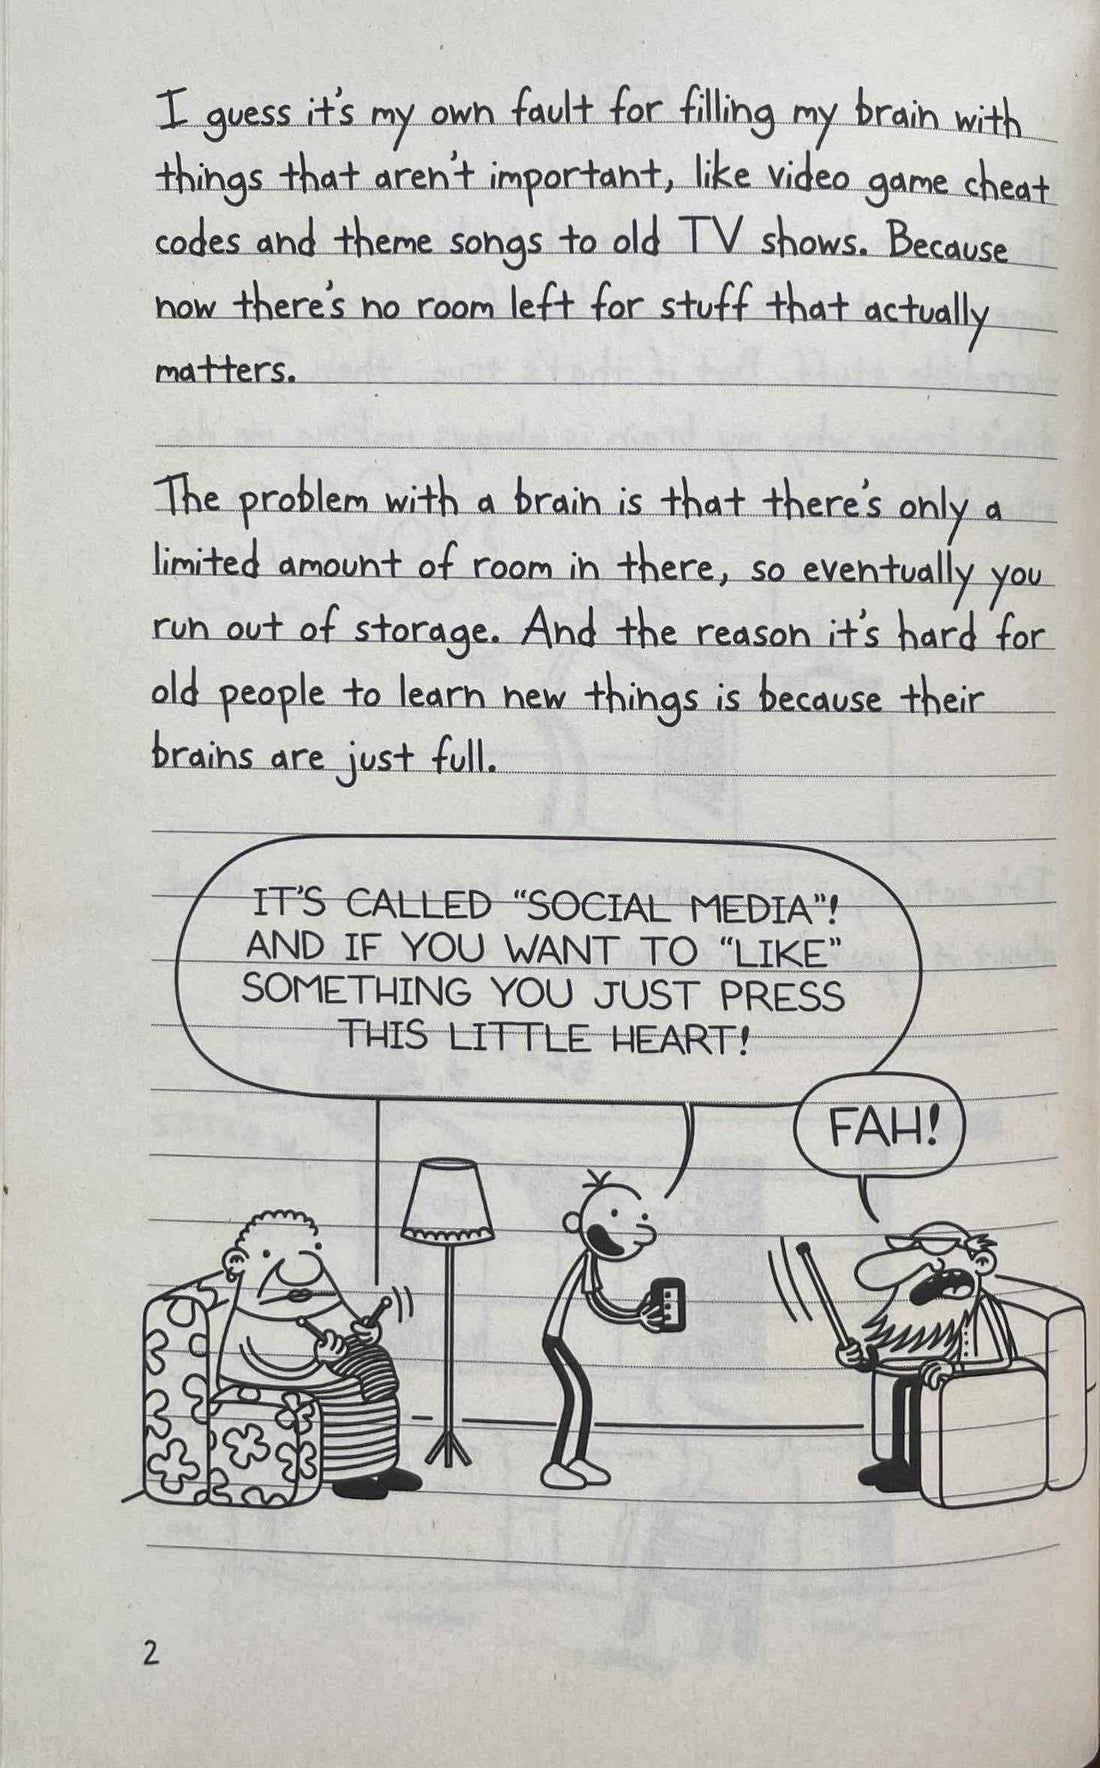 I guess it's my own fault for filling my brain with
things that aren't important, like video game cheat
codes and theme songs to old TV shows. Because
now there's no room left for stuff that actually
matters.
The problem with a brain is that there's only a
limited amount of room in there, so eventually you
run out of storage. And the reason it's hard for
old people to learn new things is because their
brains are just full.
IT'S CALLED “SOCIAL MEDIA”!
AND IF YOU WANT TO “LIKE”
SOMETHING YOU JUST PRESS
THIS LITTLE HEART!
FAH!
2